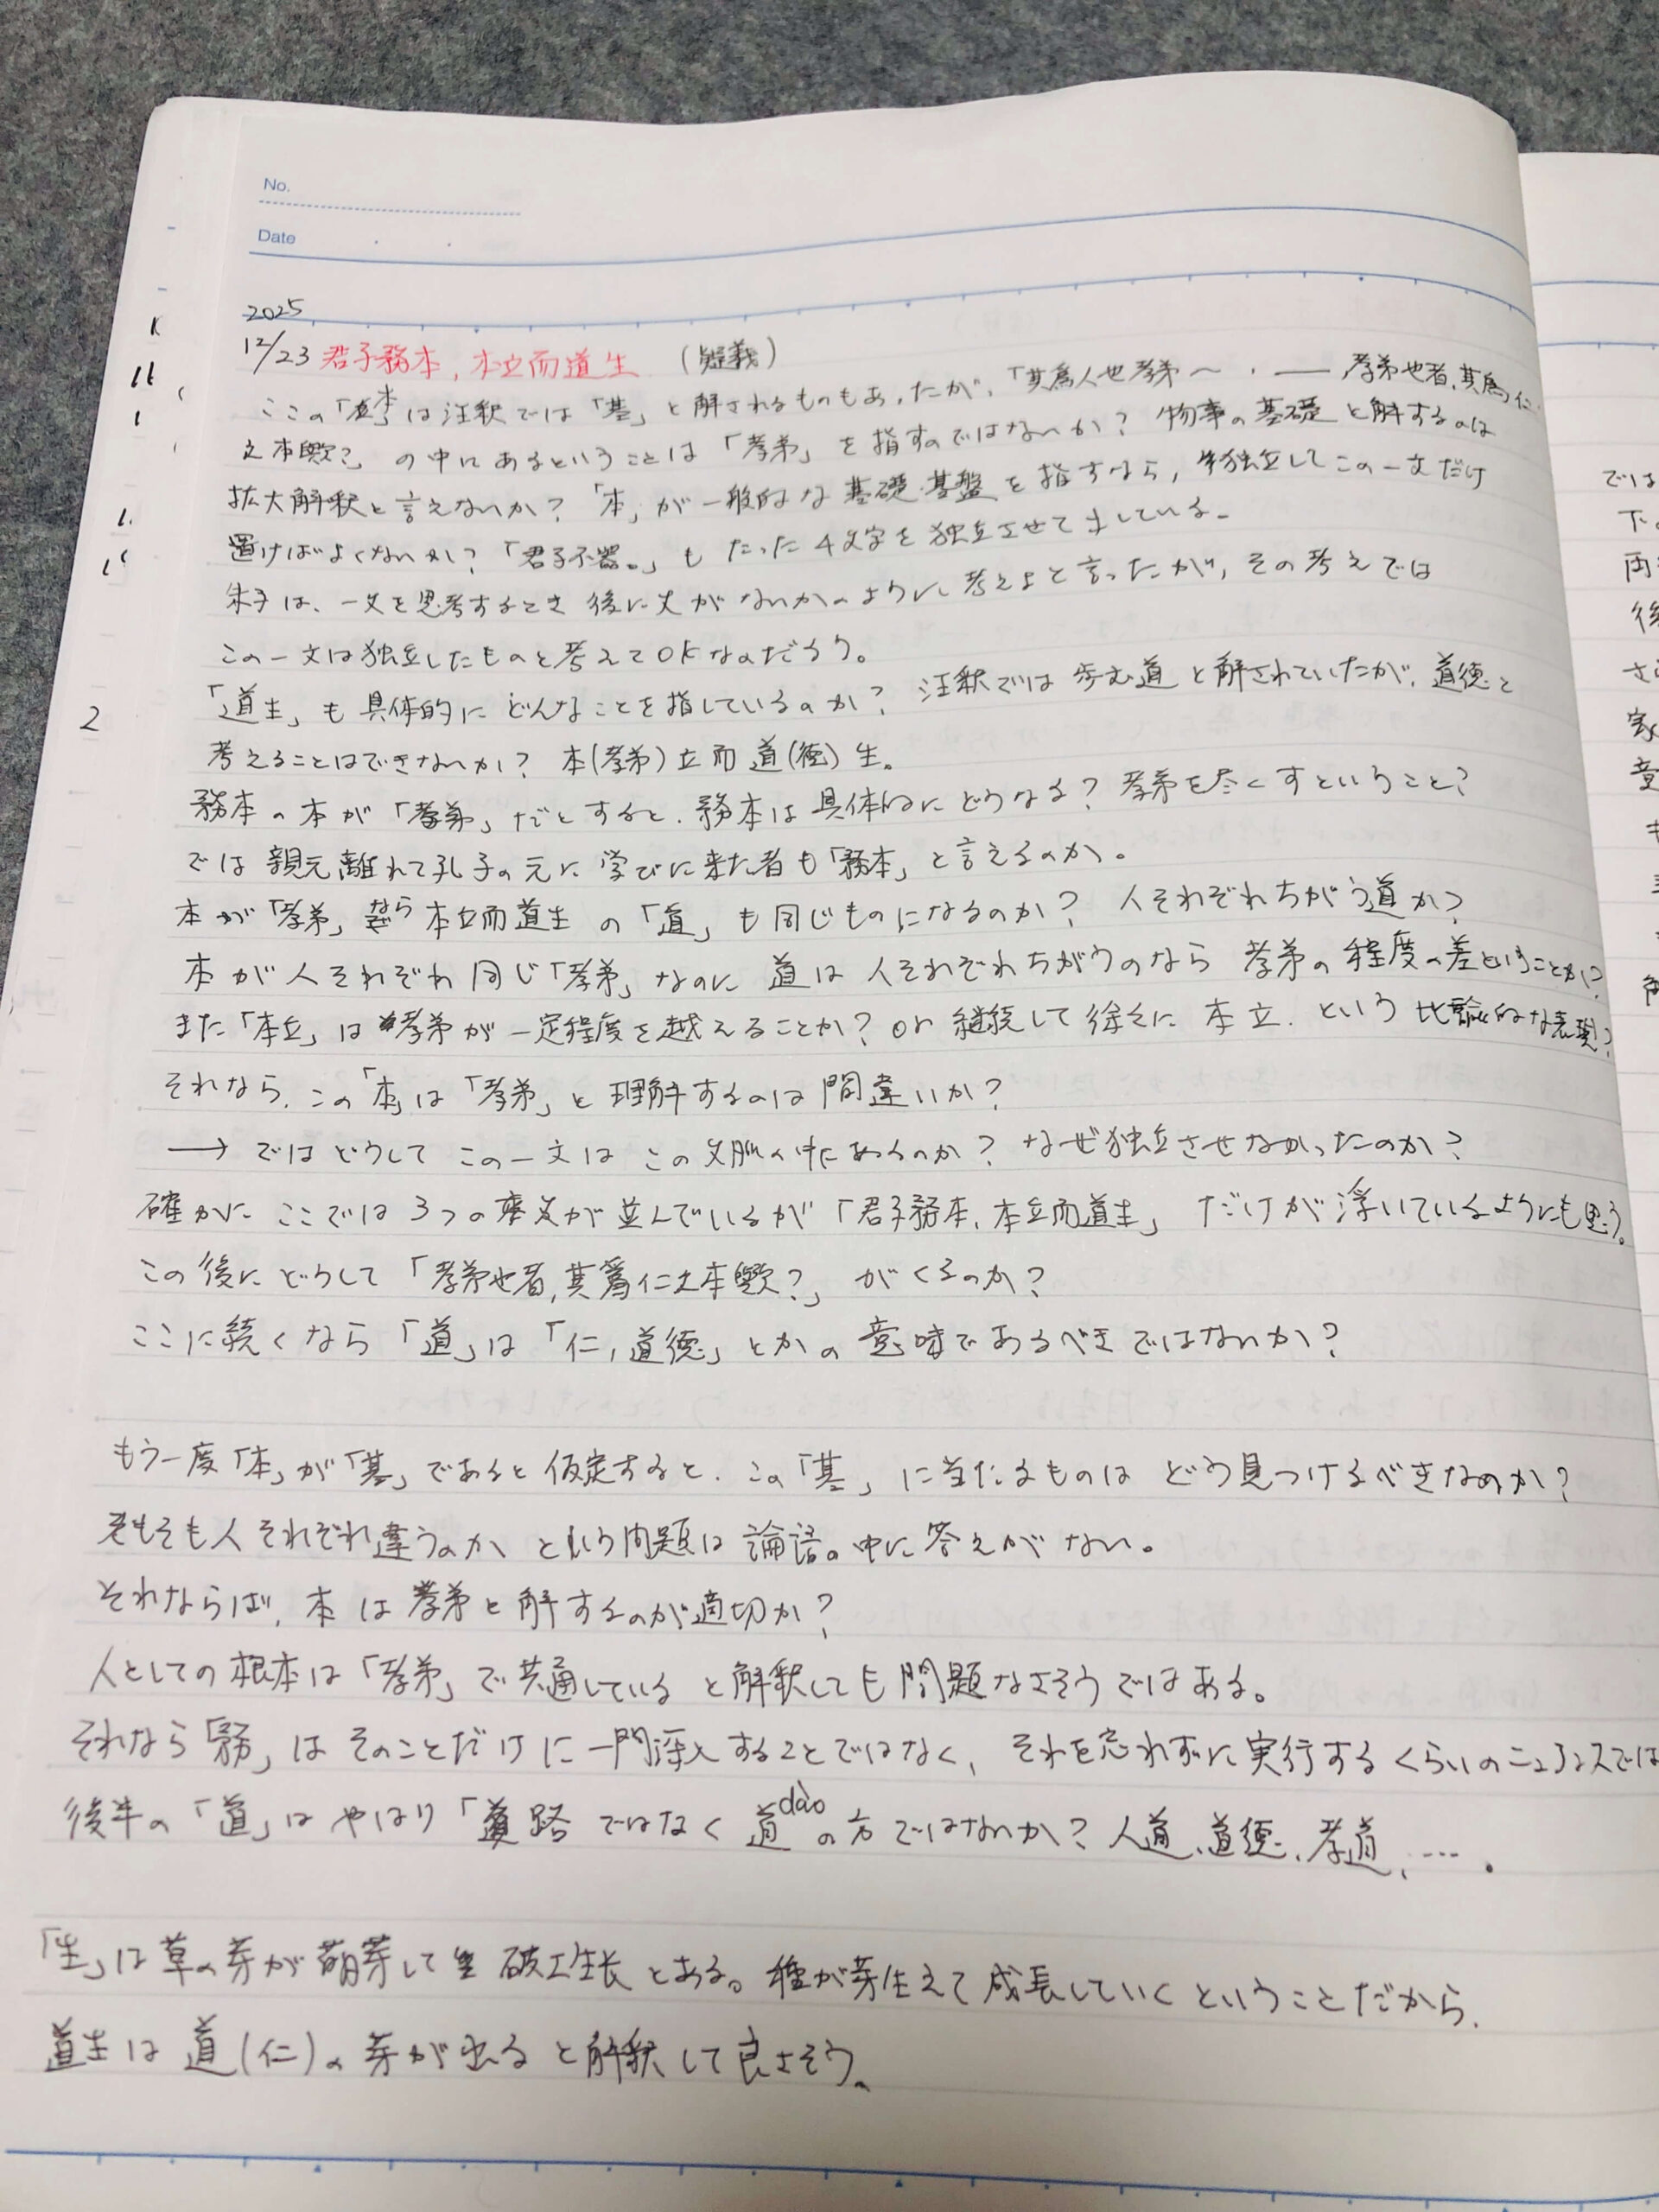 No.
Date
2025
12/23 君子務本,本立而道生 (疑義)
ここの「本」は注釈では「基」と解されるものもあったが、「其為人也孝弟〜・── 孝弟也者,其為仁
之本歟?」の中にあるということは「孝弟」を指すのではないか? 物事の基礎と解するのは
拡大解釈と言えないか?「本」が一般的な基礎・基盤を指すなら, 独立してこの一文だけ
置けばよくないか?「君子不器。」もたった4文字を独立させて している。
朱子は、一文を思考するとき後に文がないかのように考えよと言ったが, その考えでは
この一文は独立したものと考えてOKなのだろう。
「道生」も具体的にどんなことを指しているのか? 注釈では歩む道と解されていたが、道徳と
考えることはできないか? 本(孝弟)立而道(徳)生。
務本の本が「孝弟」だとすると、務本は具体的にどうなる? 孝弟を尽くすということ?
では親元離れて孔子の元に学びに来た者も「務本」と言えるのか。
本が「孝弟」なら本立而道生の「道」も同じものになるのか? 人それぞれちがう道か?
本が人それぞれ同じ「孝弟」なのに道は人それぞれちがうのなら孝弟の程度の差ということか?
また「本立」は孝弟が一定程度を越えることか? or 継続して徐々に本立.という比喩的な表現?
それなら、この「本」は「孝弟」と理解するのは間違いか?
→ ではどうしてこの一文はこの文脈の中にあるのか? なぜ独立させなかったのか?
確かにここでは3つの 文が並んでいるが「君子務本,本立而道生」だけが浮いているようにも思う。
この後にどうして「孝弟也者,其為仁之本歟?」がくるのか?
ここに続くなら「道」は「仁,道徳」とかの意味であるべきではないか?
もう一度「本」が「基」であると仮定すると、この「基」に当たるものはどう見つけるべきなのか?
そもそも人それぞれ違うのかという問題は論語の中に答えがない。
それならば、本は孝弟と解するのが適切か?
人としての根本は「孝弟」で共通していると解釈しても問題なさそうではある。
それなら「務」はそのことだけに一門浮入することではなく、それを忘れずに実行するくらいのニュアンスでは
後半の「道」はやはり「道路ではなく道dàoの方ではないか? 人道、道徳、孝道、….
「生」は草の芽が萌芽して 破土生长とある。種が芽生えて成長していくということだから、
道生は道(仁)の芽が出ると解釈して良さそう。
2
では
下
両
後